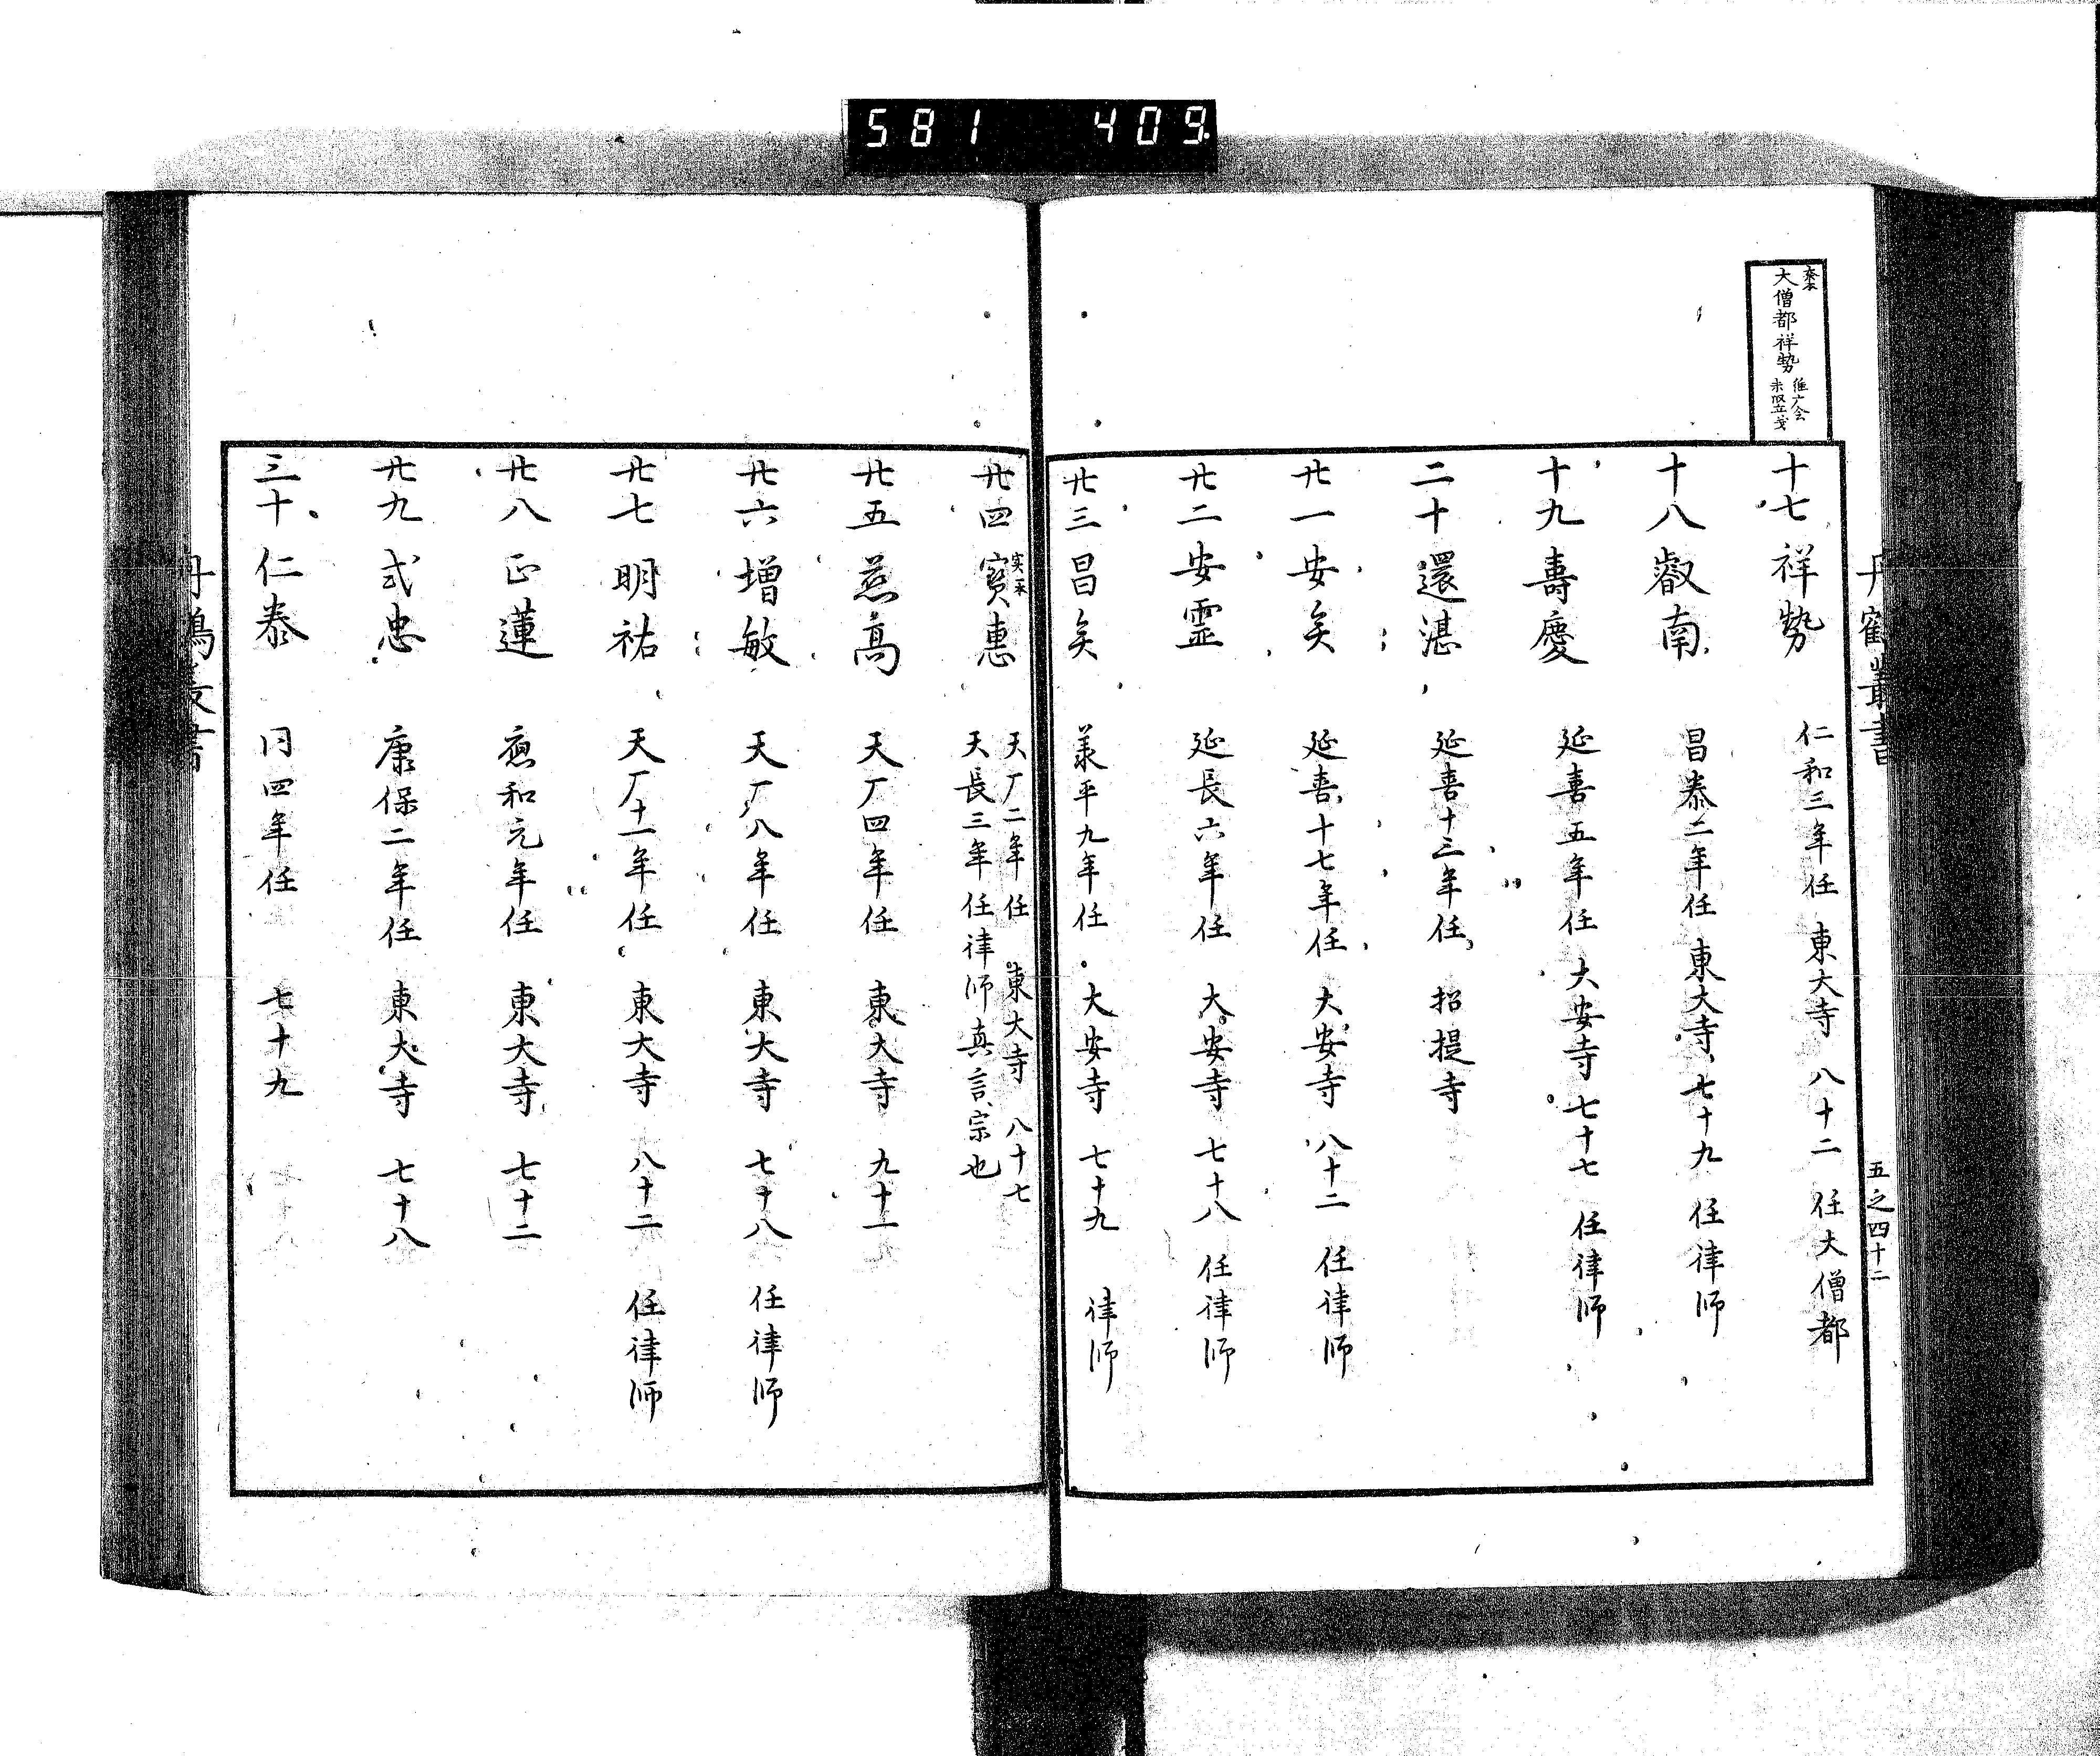 581 409
大僧都祥勢 維广会
未竪義
丹鶴叢書
五之四十二
十七 祥勢 仁和三年任 東大寺 八十二 任大僧都
十八 叡南 昌泰二年任 東大寺 七十九 任律師
十九 壽慶 延喜五年任 大安寺 七十七 任律師
二十 還湛 延喜十三年任 招提寺
廿一 安奐 延喜十七年任 大安寺 八十二 任律師
廿二 安霊 延長六年任 大安寺 七十八 任律師
廿三 昌奐 羕平九年任 大安寺 七十九 律師
廿四 寳惠 天厂二年任 東大寺 八十七
天長三年任律师真言宗也
廿五 燕髙 天厂四年任 東大寺 九十一
廿六 増敏 天厂八年任 東大寺 七十八 任律师
廿七 明祐 天厂十一年任 東大寺 八十二 任律師
廿八 正蓮 應和元年任 東大寺 七十二
廿九 式忠 康保二年任 東大寺 七十八
三十 仁泰 同四年任 七十九